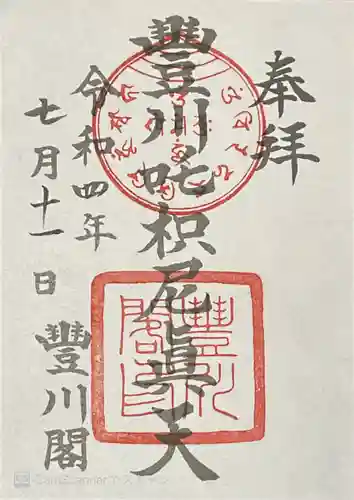 奉拝
豐川吒枳尼眞天
令和四年
七月十一日
豐川閣
豐川閣印